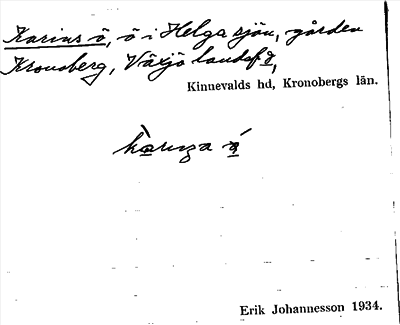 Karins ö, ö i Helgasjön, gården
Kronoberg, Växjö landsf d,
Kinnevalds hd, Kronobergs län.
Erik Johannesson 1934.